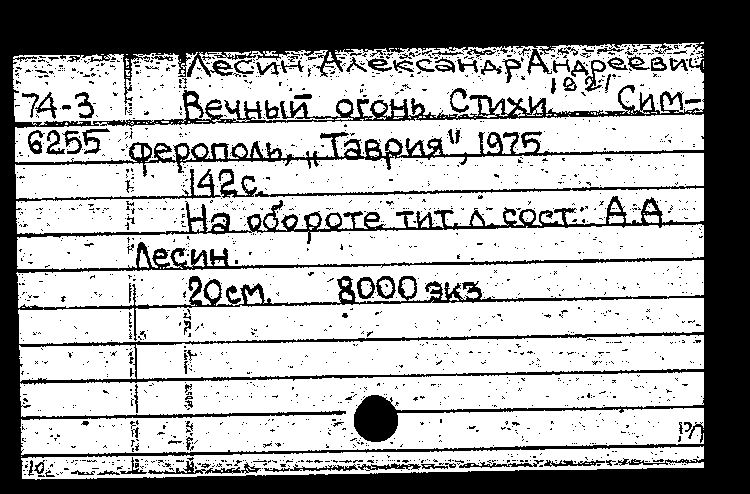 Лесин, Александр Андреевич
1921
74-3 Вечный огонь. Стихи. Сим-
6255 ферополь, „Таврия", 1975.
142 с.
На обороте тит. л. сост.: А.А.
Лесин.
20 см. 8000 экз.
РЛ